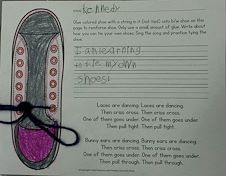 Name Kennedy
Glue colored shoe with a string in it (not tied) onto b/w shoe on this
page to reinforce shoe. Only use a small amount of glue. Write about
how you can tie your own shoes. Sing the song and practice tying
the shoe.
I am learning
to tie my own
shoes!
Laces are dancing. Laces are dancing.
Then criss cross. Then criss cross.
One of them goes under. One of them goes under.
Then pull tight. Then pull tight.
Bunny ears are dancing. Bunny ears are dancing.
Then criss cross. Then criss cross.
One of them goes under. One of them goes under.
Then pull through. Then pull through.